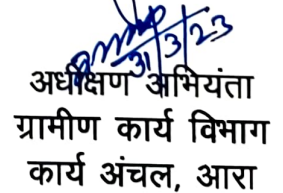 31/3/23
अधीक्षण अभियंता
ग्रामीण कार्य विभाग
कार्य अंचल, आरा